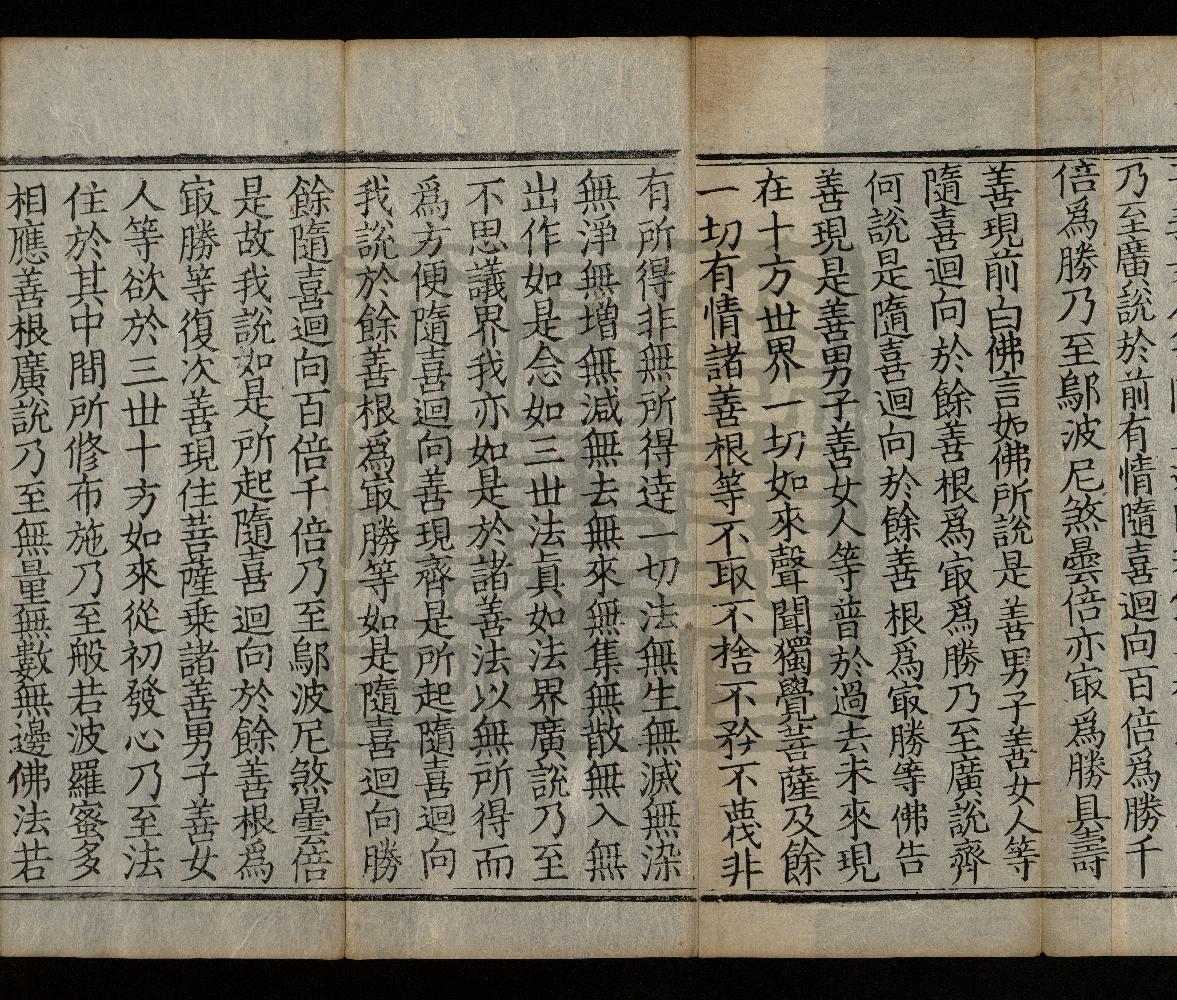 乃至廣說於前有情隨喜迴向百倍爲勝千
倍爲勝乃至鄔波尼煞曇倍亦㝡爲勝具壽
善現前白佛言如佛所說是善男子善女人等
隨喜迴向於餘善根爲㝡爲勝乃至廣說齊
何說是隨喜迴向於餘善根爲㝡勝等佛告
善現是善男子善女人等普於過去未來現
在十方丗界一切如來聲聞獨覺菩薩及餘
一切有情諸善根等不取不捨不矜不蔑非
有所得非無所得達一切法無生無滅無染
無淨無增無減無去無來無集無散無入無
出作如是念如三丗法眞如法界廣說乃至
不思議界我亦如是於諸善法以無所得而
爲方便隨喜迴向善現齊是所起隨喜迴向
我說於餘善根爲㝡勝等如是隨喜迴向勝
餘隨喜迴向百倍千倍乃至鄔波尼煞曇倍
是故我說如是所起隨喜迴向於餘善根爲
㝡勝等復次善現住菩薩乘諸善男子善女
人等欲於三丗十方如來從初發心乃至法
住於其中間所修布施乃至般若波羅蜜多
相應善根廣說乃至無量無數無邊佛法若